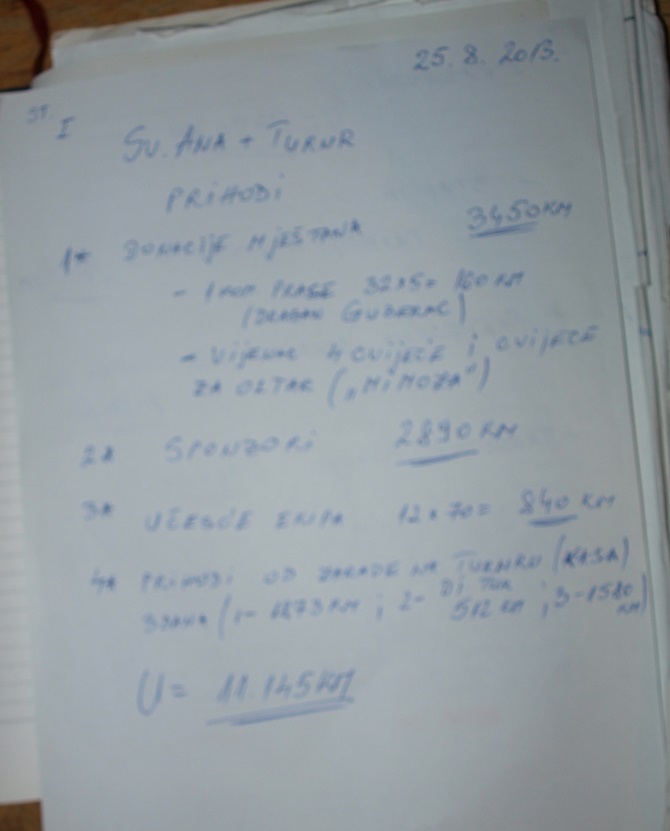 25. 8. 2013.
ST.
I
SV. ANA + TURNIR
PRIHODI
1* DONACIJE MJEŠTANA 3450 KM
- 1 KOM PRASE 32x5= 160 KM
(DRAGAN GUBERAC)
- VIJENAC 4 CVIJEĆE I CVIJEĆE
ZA OLTAR („MIMOZA")
2* SPONZORI 2890 KM
3* UČEŠĆE EKIPA 12 x 70= 840 KM
4* PRIHODI OD ZARADE NA TURNIRU (KASA)
3 DANA (1- 1873 KM ; 2- 512 KM ; 3-1580 KM)
U= 11.145 KM